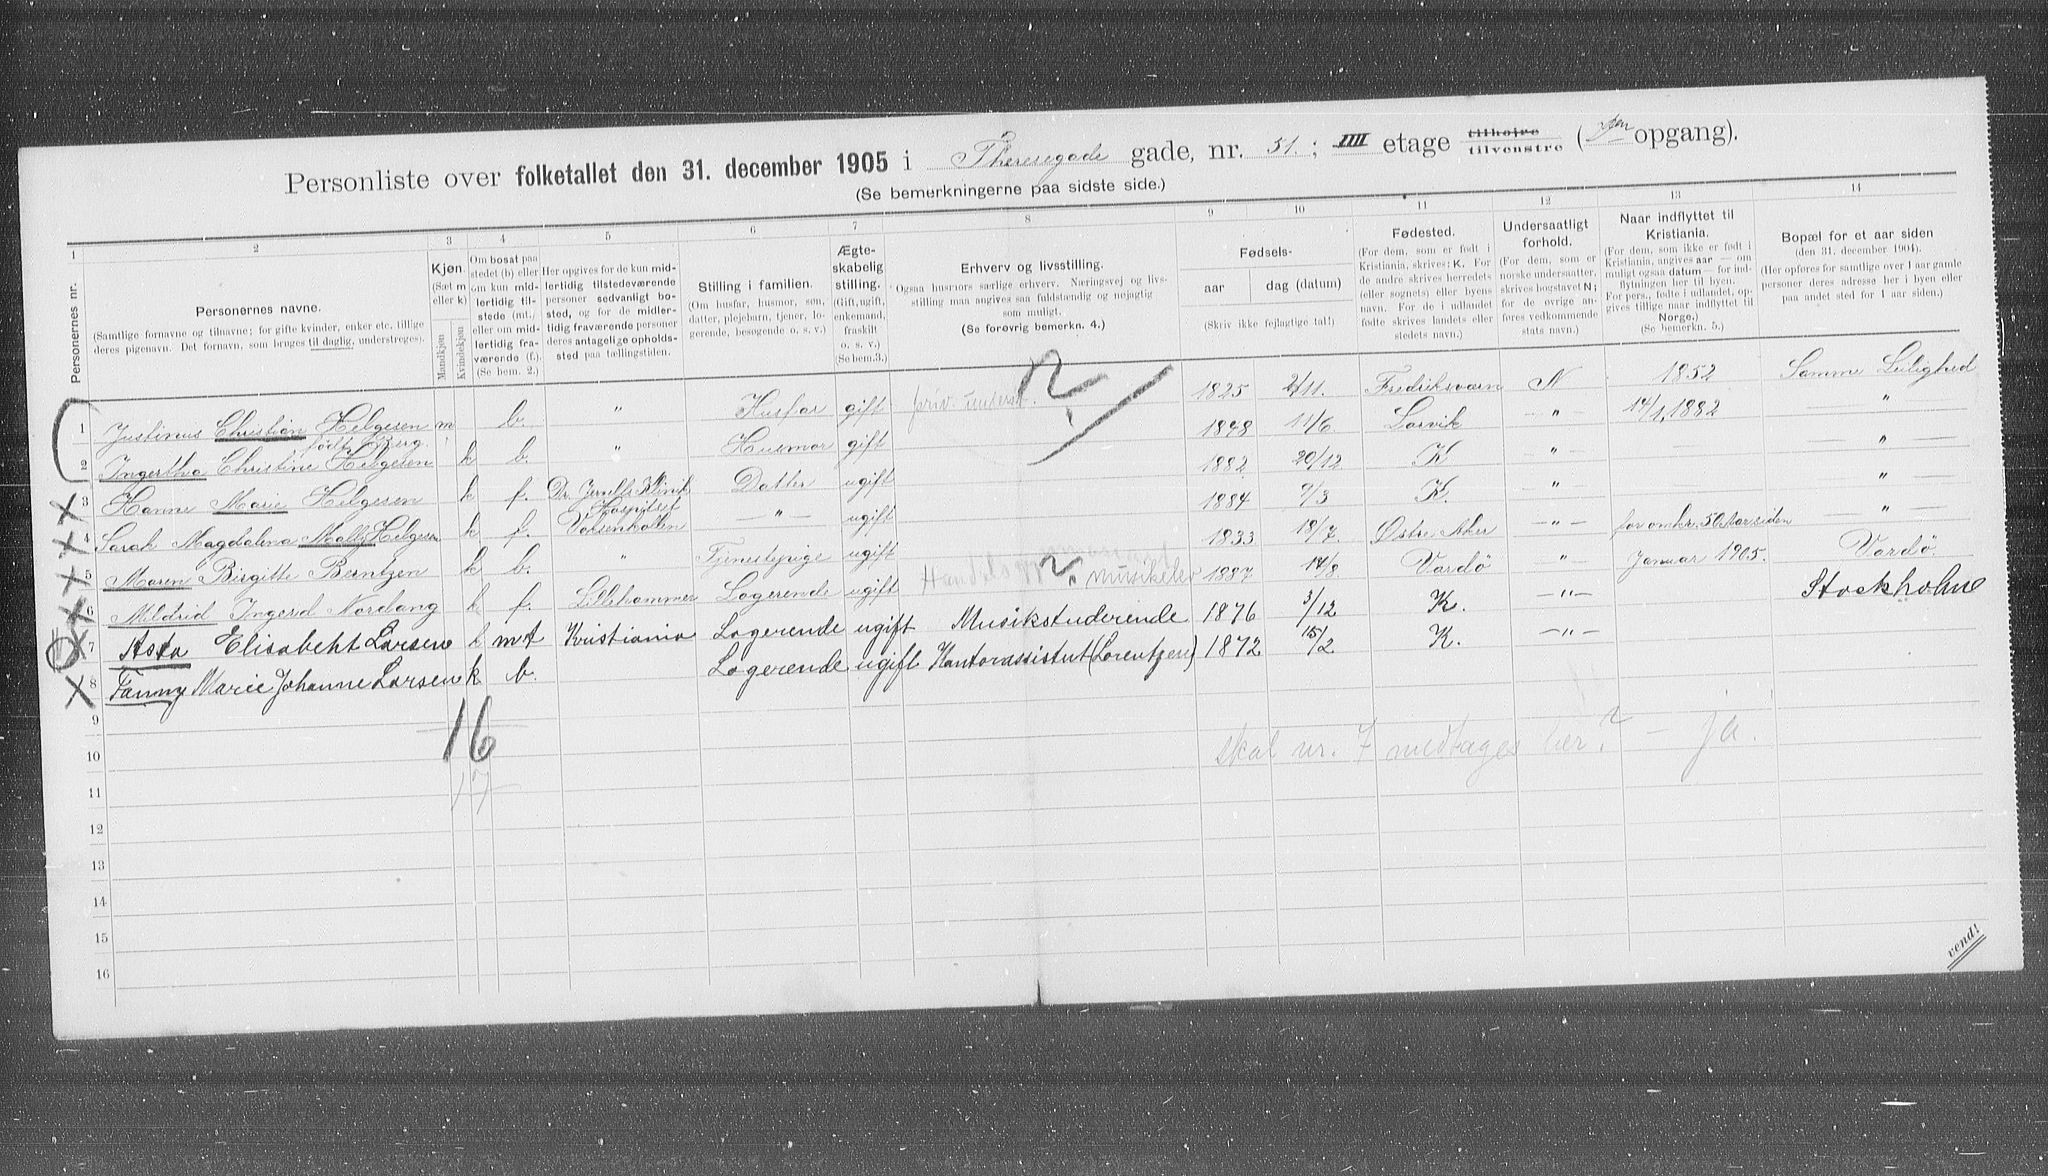 Personliste over folketallet den 31. december 1905 i Theresegade gade, nr. 51. ; IIII etage tilhøjre tilvenstre ( opgang).
(Se bemerkningerne paa sidste side.)
1 2 3 4 5 6 7 8 9 10 11 12 13 14
Personernes nr.
Personernes navne.
(Samtlige fornavne og tilnavne; for gifte kvinder, enker etc. tillige
deres pigenavn. Det fornavn, som bruges til daglig, understreges).
Kjøn.
(Sæt m
eller k)
Mandkjøn
Kvindekjøn
Om bosat paa
stedet (b) eller
om kun mid-
lertidig til-
stede (mt.)
eller om mid-
lertidig fra-
værende (f.).
(Se bem. 2.)
Her opgives for de kun mid-
lertidig tilstedeværende
personer sedvanligt bo-
sted, og for de midler-
tidig fraværende personer
deres antagelige opholds-
sted paa tællingstiden.
Stilling i familien.
(Om husfar, husmor, søn,
datter, plejebarn, tjener, lo-
gerende, besøgende o. s. v.)
Ægte-
skabelig
stilling.
(Gift, ugift,
enkemand,
fraskilt
o. s. v.)
(Se bem.3.)
Erhverv og livsstilling.
Ogsaa husmors særlige erhverv. Næringsvej og livs-
stilling maa angives saa fuldstændig og nøjagtig
som muligt.
(Se forøvrig bemerkn. 4.)
Fødsels-
aar
dag (datum)
(Skriv ikke fejlagtige tal!)
Fødested.
(For dem, som er født i
Kristiania, skrives: K. For
de andre skrives herredets
(eller sognets) eller byens
navn. For de i udlandet
fødte skrives landets eller
stedets navn.)
Undersaatligt
forhold.
(For dem, som er
norske undersaatter,
skrives bogstavet N;
for de øvrige an-
føres vedkommende
stats navn.)
Naar indflyttet til
Kristiania.
(For dem, som ikke er født i
Kristiania, angives aar — om
muligt ogsaa datum — for ind-
flytningen her til byen.
For pers., fødte i udlandet, op-
gives tillige naar indflyttet til
Norge.)
(Se bemerkn. 5.)
Bopæl for et aar siden
(den 31. december 1904).
(Her opføres for samtlige over 1 aar gamle
personer deres adresse her i byen eller
paa andet sted for 1 aar siden.)
1 Justinus Christian Helgesen m b. " Husfar gift priv. underst. ? 1825 2/11. Fredriksværn N 1852 Samme Leilighed
født Berg.
2 Ingertha Christine Helgesen k b. " Husmor gift 1848 11/6 Larvik " 14/1, 1882 "
3 Hanne Marie Helgesen k f. Dr. Klinik Datter ugift 1882 20/12 K — " — — " —
4 Sarah Magdalena Mally Helgesen k f. Hospitset Voksenkollen — " — ugift 1884 9/3 K. " — " —
5 Maren Birgitte Berntzen k b. " Tjenestepige ugift 1833 18/7 Østre Aker — " — for omkr. 50 Aar siden — " —
6 Mildrid Ingerd Nordang k f. Lillehammer Logerende ugift ? musikelev 1887 14/8. Vardø " Januar 1905. Vardø
7 Asta Elisabeht Larsen k mt Kristiania Logerende ugift Musikstuderende 1876 3/12 K. — " — Stockholm
8 Fanny Marie Johanne Larsen k b. Logerende ugift Kontorassistent (Lorentzen) 1872 15/2 K. — " —
9
16
skal nr. 7 medtages her? — ja.
10
17
11
12
13
14
15
16
vend!